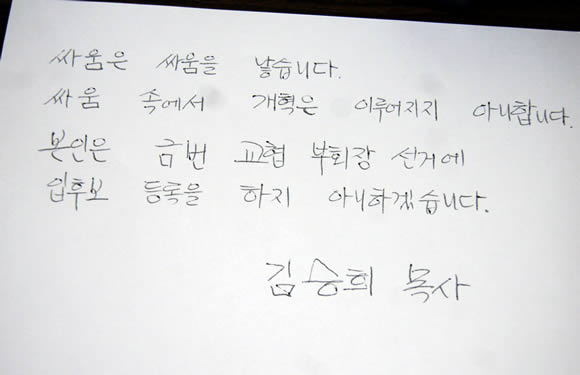 싸움은 싸움을 낳습니다.
싸움 속에서 개혁은 이루어지지 아니합니다.
본인은 금번 교협 부회장 선거에
입후보 등록을 하지 아니하겠습니다.
김승희 목사